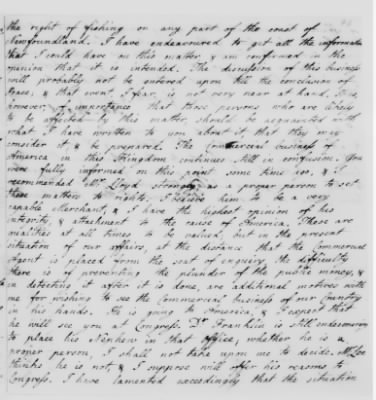 the right of fishing on any part of the coast of
Newfoundland. I have endeavoured to get all the information
that I could have on this matter, & am confirmed in the
opinion that it is intended. The discussion of this business
will probably not be entered upon till the conclusion of
Peace, & that event I fear, is not very near at hand. It is,
however, of importance that those persons who are likely
to be affected by this matter, should be acquainted with
what I have written to you about it, that they may
consider it & be prepared. The Commercial business of
America in this Kingdom continues still in confusion. You
were fully informed on this point some time ago, & I
recommended Mr. Lloyd strongly as a proper person to set
these matters to rights. I believe him to be a very
capable Merchant, & I have the highest opinion of his
integrity, & attachment to the cause of America. These are
qualities at all times to be valued, but in the present
situation of our affairs, at the distance that the Commercial
Agent is placed from the seat of enquiry, the difficulty
there is of preventing the plunder of the public money, &
in detecting it after it is done, are additional motives with
me for wishing to see the Commercial business of our Country
in his hands. He is going to America, & I expect that
he will see you at Congress. Dr. Franklin is still endeavouring
to place his Nephew in that office, whether he is a
proper person, I shall not take upon me to decide. Mr. Lee
thinks he is not, & I suppose will offer his reasons to
Congress. I have lamented exceedingly that the situation